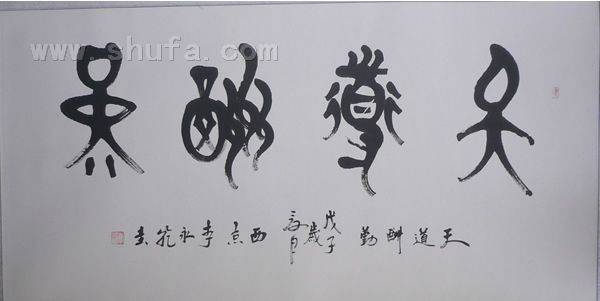 www.shufa.com
天道酬勤
天道酬勤 戊子歲 月 西京李永 书